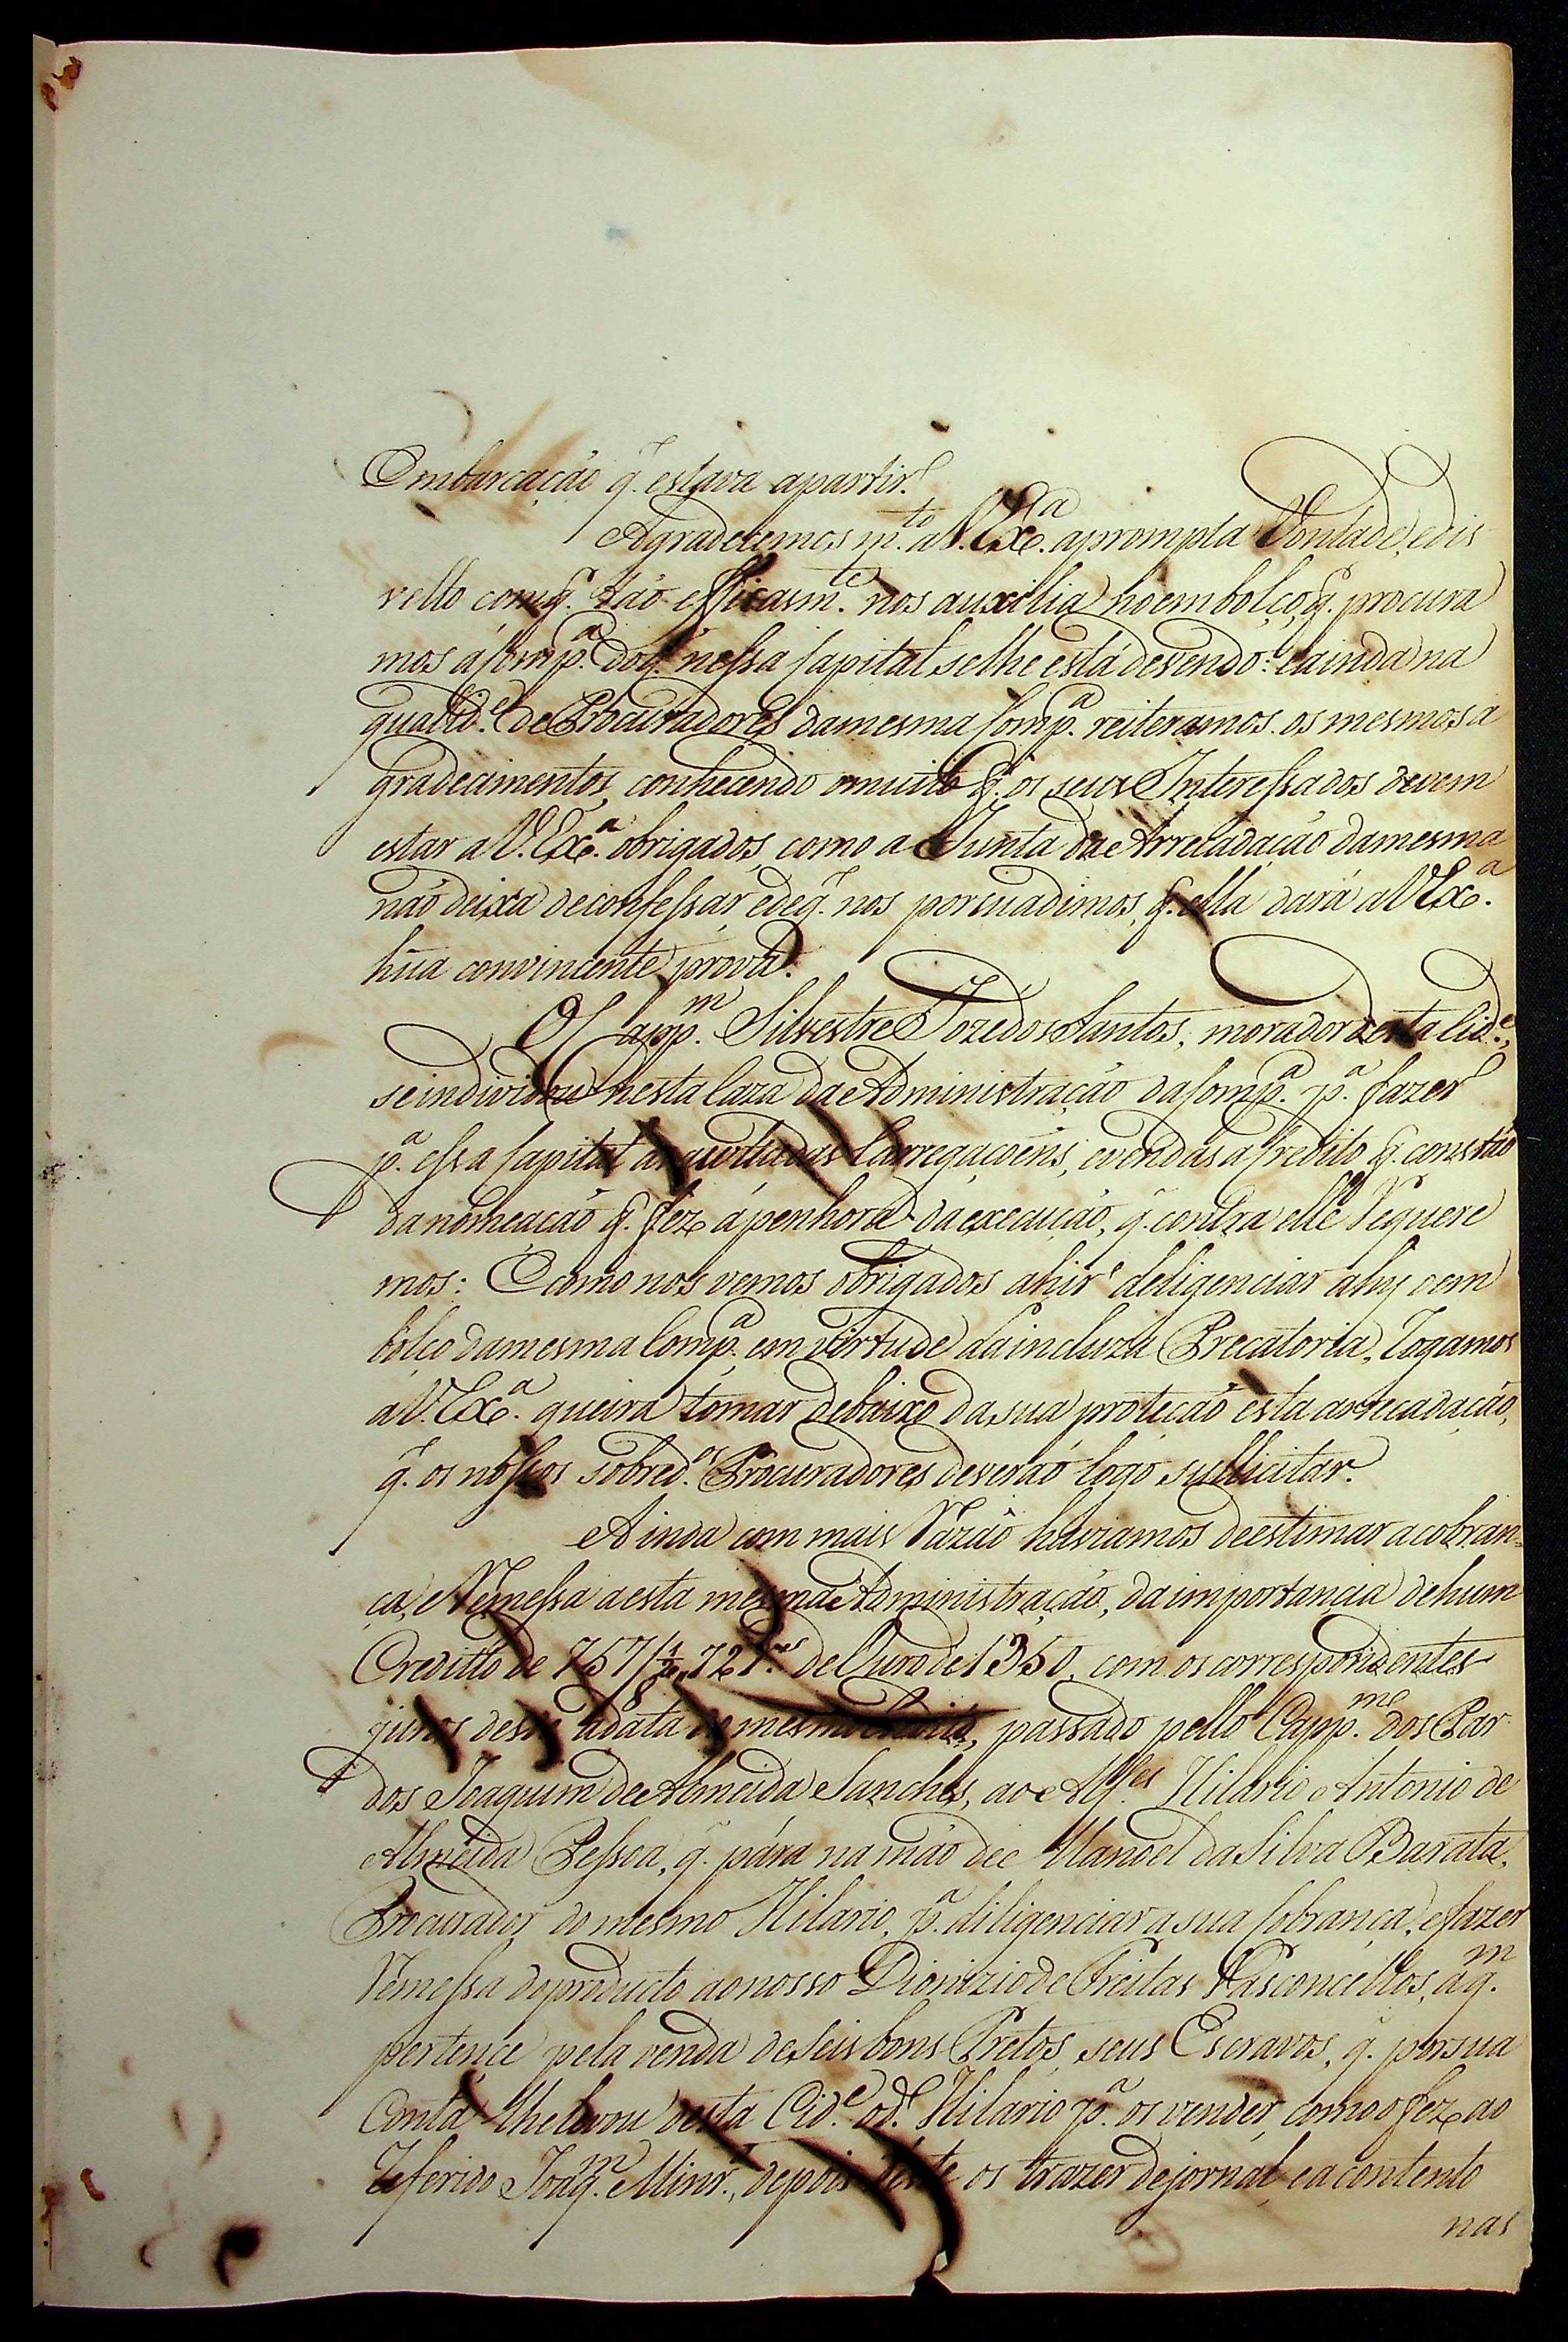 Embarcação q̃. estava apartir.
Agradecemos m.to a V. Ex.a aprompta Vontade, edis
vello com q̃. tão efficasm.te nos auxilia ho embolço, q̃. procura
mos á Comp.a do q̃. nessa Capital selhe está devendo: e ainda na
qualid.e de Procuradores damesma Comp.a reiteramos os mesmos a
gradecimentos, conhecendo omuito q̃. os seus Interessados devem
estar a V. Ex.a obrigados, como a Junta da Arrecadação damesma
não deixa deconfessar, edeq̃. nos porsuadimos, q̃. ella dará a V Ex.a
hũa convincente prova.
O Capp.m Silvestre Jozé dos Santos, morador desta Cid.e,
seindividou nesta Caza da Administração da Comp.a p.a fazer
p.a essa Capital as avultadas Carregaçoens, evendas a Credito q̃. constão
danomeação q̃. fez á penhora da execução, q̃. contra elle Requere
mos: E como nos vemos obrigados ahir deligenciar ahy oem
bolço damesma Comp.a em virtude da incluza Precatoria, Rogamos
a V. Ex.a queira tomar debaixo da sua proteção esta arrecadação,
q̃. os nossos sobred.os Procuradores deverão logo sullicitar.
Ainda com mais Razão haviamos deestimar acobran=
ça, e Remessa aesta mesma Administração, da importancia dehum
Creditto de 757/ 1/2 " 721.res de Ouro de 1350, com os correspondentes
juros desde adata do mesmo Credito, passado pello Capp.m dos Par
dos Joaquim de Almeida Sanches, ao Alf.es Hilario Antonio de
Almeida Pessoa, q̃. pára na mão de Manoel da Silva Barata,
Procurador do mesmo Hilario, p.a diligenciar a sua Cobrança, efazer
Remessa do producto aonosso Dionizio de Freitas Vasconcellos, aq.m
pertence pela venda de seis bons Pretos, seus Escravos, q̃. por sua
Conta lhe levou desta Cid.e o d.o Hilario p.a os vender, como o fez ao
Referido Joaq.m Minr., depois deste os trazer de jornal, e a contento
nas